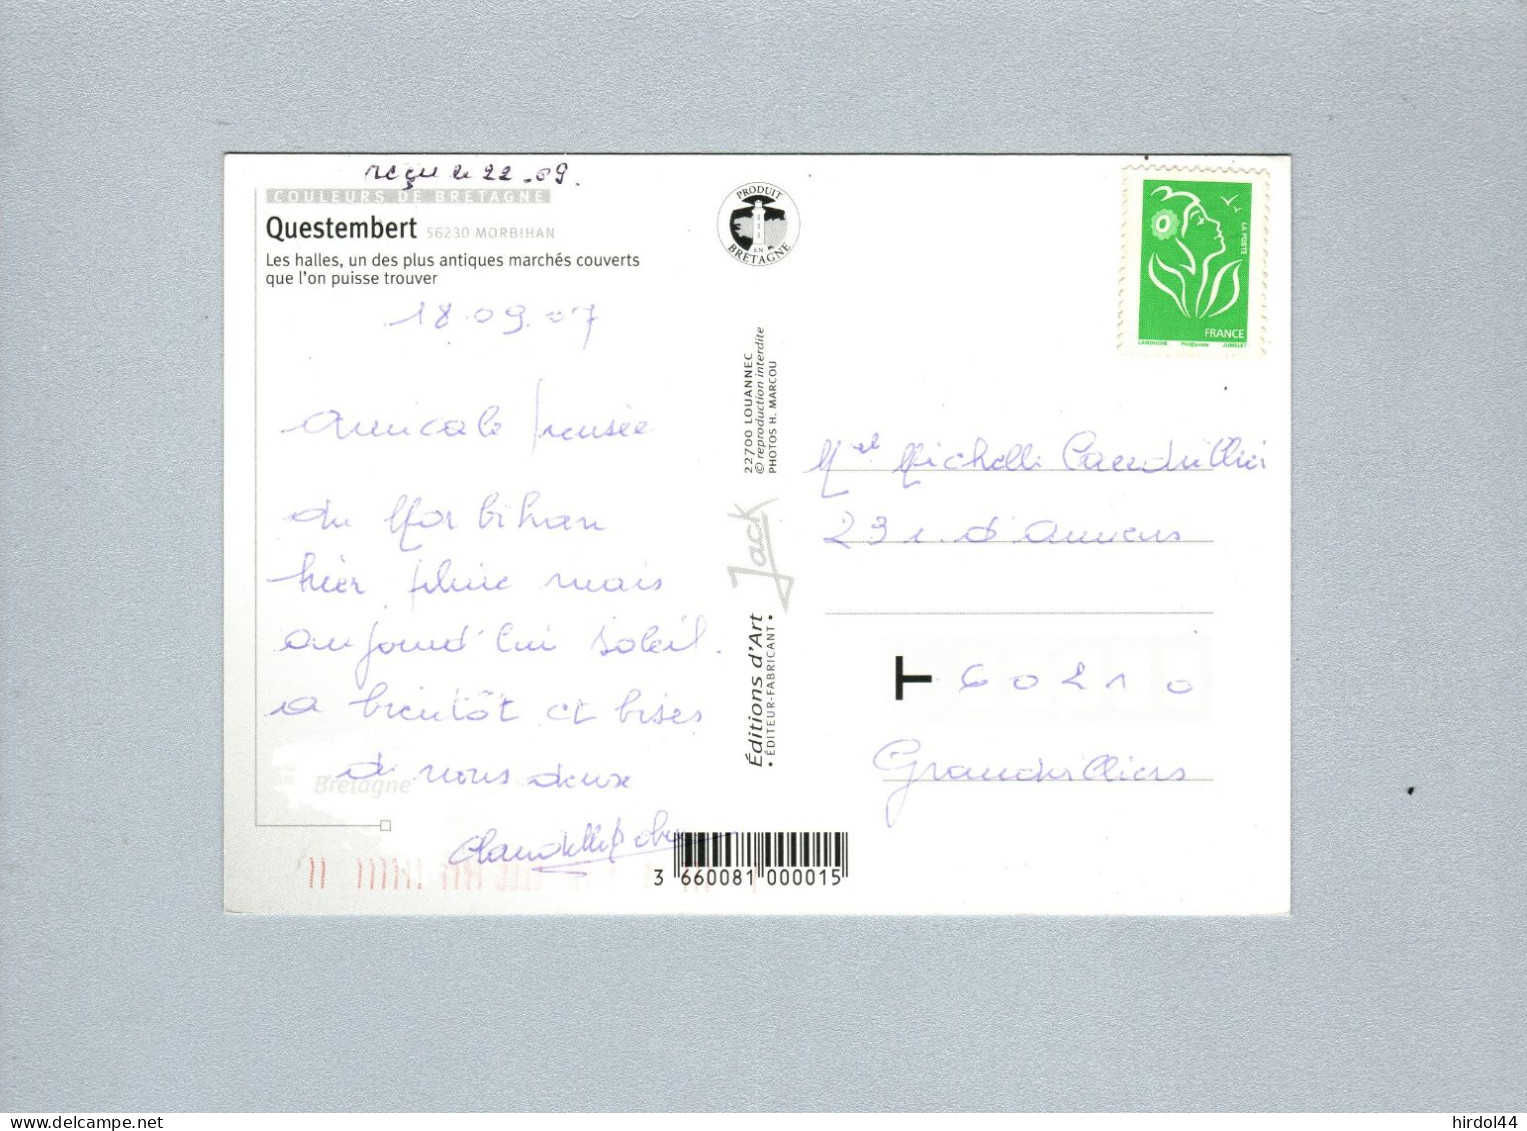 reçu le 22.09.
COULEURS DE BRETAGNE
Questembert 56230 MORBIHAN
Les halles, un des plus antiques marchés couverts
que l'on puisse trouver
18.09.07
Amicale pensée
du Morbihan
hier pluie mais
aujourd'hui soleil.
a bientôt et bises
de nous deux
Bretagne
PRODUIT
EN
BRETAGNE
22700 LOUANNEC
© reproduction interdite
PHOTOS H. MARCOU
Jack
Éditions d'Art
• ÉDITEUR-FABRICANT •
3 660081 000015
LA POSTE
FRANCE
LAMOUCHE Phil@poste JUMELET
Michelle
23 r. d'Amiens
T 60210
Grandvilliers
delcampe.net
hirdol44